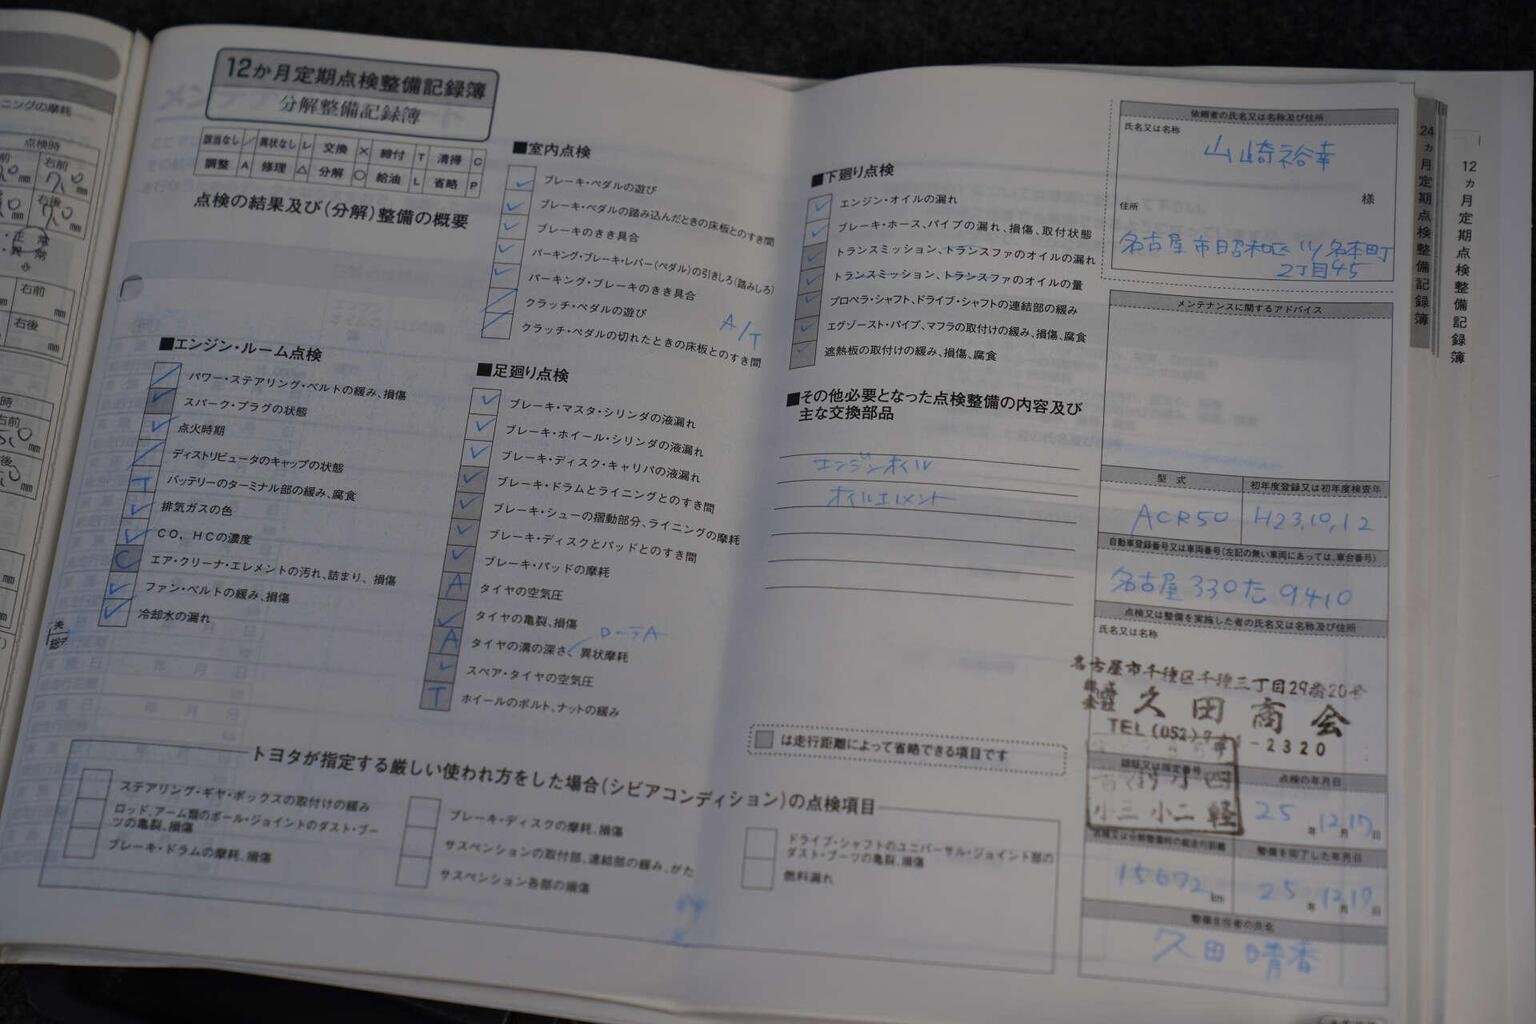 12か月定期点検整備記録簿
分解整備記録簿
該当なし ／ 異状なし レ 交換 × 締付 T 清掃 C
調整 A 修理 △ 分解 ○ 給油 L 省略 P
点検の結果及び(分解)整備の概要
■エンジン・ルーム点検
パワー・ステアリング・ベルトの緩み、損傷
スパーク・プラグの状態
点火時期
ディストリビュータのキャップの状態
T バッテリーのターミナル部の緩み、腐食
排気ガスの色
CO，HCの濃度
C エア・クリーナ・エレメントの汚れ、詰まり、損傷
ファン・ベルトの緩み、損傷
冷却水の漏れ
■室内点検
ブレーキ・ペダルの遊び
ブレーキ・ペダルの踏み込んだときの床板とのすき間
ブレーキのきき具合
パーキング・ブレーキ・レバー(ペダル)の引きしろ(踏みしろ)
パーキング・ブレーキのきき具合
クラッチ・ペダルの遊び
A/T
クラッチ・ペダルの切れたときの床板とのすき間
■足廻り点検
ブレーキ・マスタ・シリンダの液漏れ
ブレーキ・ホイール・シリンダの液漏れ
ブレーキ・ディスク・キャリパの液漏れ
ブレーキ・ドラムとライニングとのすき間
ブレーキ・シューの摺動部分、ライニングの摩耗
ブレーキ・ディスクとパッドとのすき間
ブレーキ・パッドの摩耗
A タイヤの空気圧
タイヤの亀裂、損傷
A タイヤの溝の深さ、異状摩耗
スペア・タイヤの空気圧
T ホイールのボルト、ナットの緩み
■下廻り点検
エンジン・オイルの漏れ
ブレーキ・ホース、パイプの漏れ、損傷、取付状態
トランスミッション、トランスファのオイルの漏れ
トランスミッション、トランスファのオイルの量
プロペラ・シャフト、ドライブ・シャフトの連結部の緩み
エグゾースト・パイプ、マフラの取付けの緩み、損傷、腐食
遮熱板の取付けの緩み、損傷、腐食
■その他必要となった点検整備の内容及び
主な交換部品
エンジンオイル
オイルエレメント
は走行距離によって省略できる項目です
トヨタが指定する厳しい使われ方をした場合(シビアコンディション)の点検項目
ステアリング・ギヤ・ボックスの取付けの緩み
ロッド、アーム類のボール・ジョイントのダスト・ブー
ツの亀裂、損傷
ブレーキ・ドラムの摩耗、損傷
ブレーキ・ディスクの摩耗、損傷
サスペンションの取付部、連結部の緩み、がた
サスペンション各部の損傷
ドライブ・シャフトのユニバーサル・ジョイント部の
ダスト・ブーツの亀裂、損傷
燃料漏れ
依頼者の氏名又は名称及び住所
氏名又は名称
山崎裕幸
様
住所
名古屋市昭和区
2丁目45
メンテナンスに関するアドバイス
型式
初年度登録又は初年度検査年
ACR50
H23,10,12
自動車登録番号又は車両番号(左記の無い車両にあっては、車台番号)
名古屋 330 た 9410
点検又は整備を実施した者の氏名又は名称及び住所
氏名又は名称
名古屋市千種区千種三丁目29番20号
久田商会
TEL(052)
-2320
小三 小二 軽
点検の年月日
25 年 12 月 17 日
整備を完了した年月日
15692 km
25 年 12 月 17 日
整備主任者の氏名
久田晴香
24カ月定期点検整備記録簿
12カ月定期点検整備記録簿
ニングの摩耗
点検時
右前
右後
右前
右後